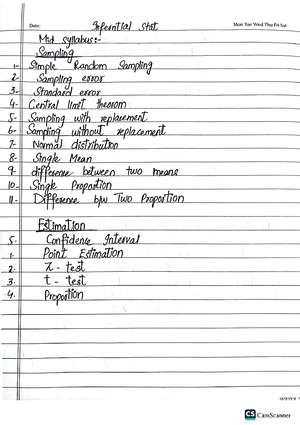 Date:
Inferntial Stat
Mon Tue Wed Thu Fri Sat
Mid Syllabus:-
Sampling
1- Simple Random Sampling
2- Sampling error
3- Standard error
4- Central limit theorom
5- Sampling with replacement
6- Sampling without replacement
7- Normal distribution
8- Single Mean
9- difference between two means
10- Single Proportion
11- Difference b/w Two Proportion
Estimation
5. Confidence Interval
1- Point Estimation
2. Z - test
3. t - test
4. Proportion
CS CamScanner